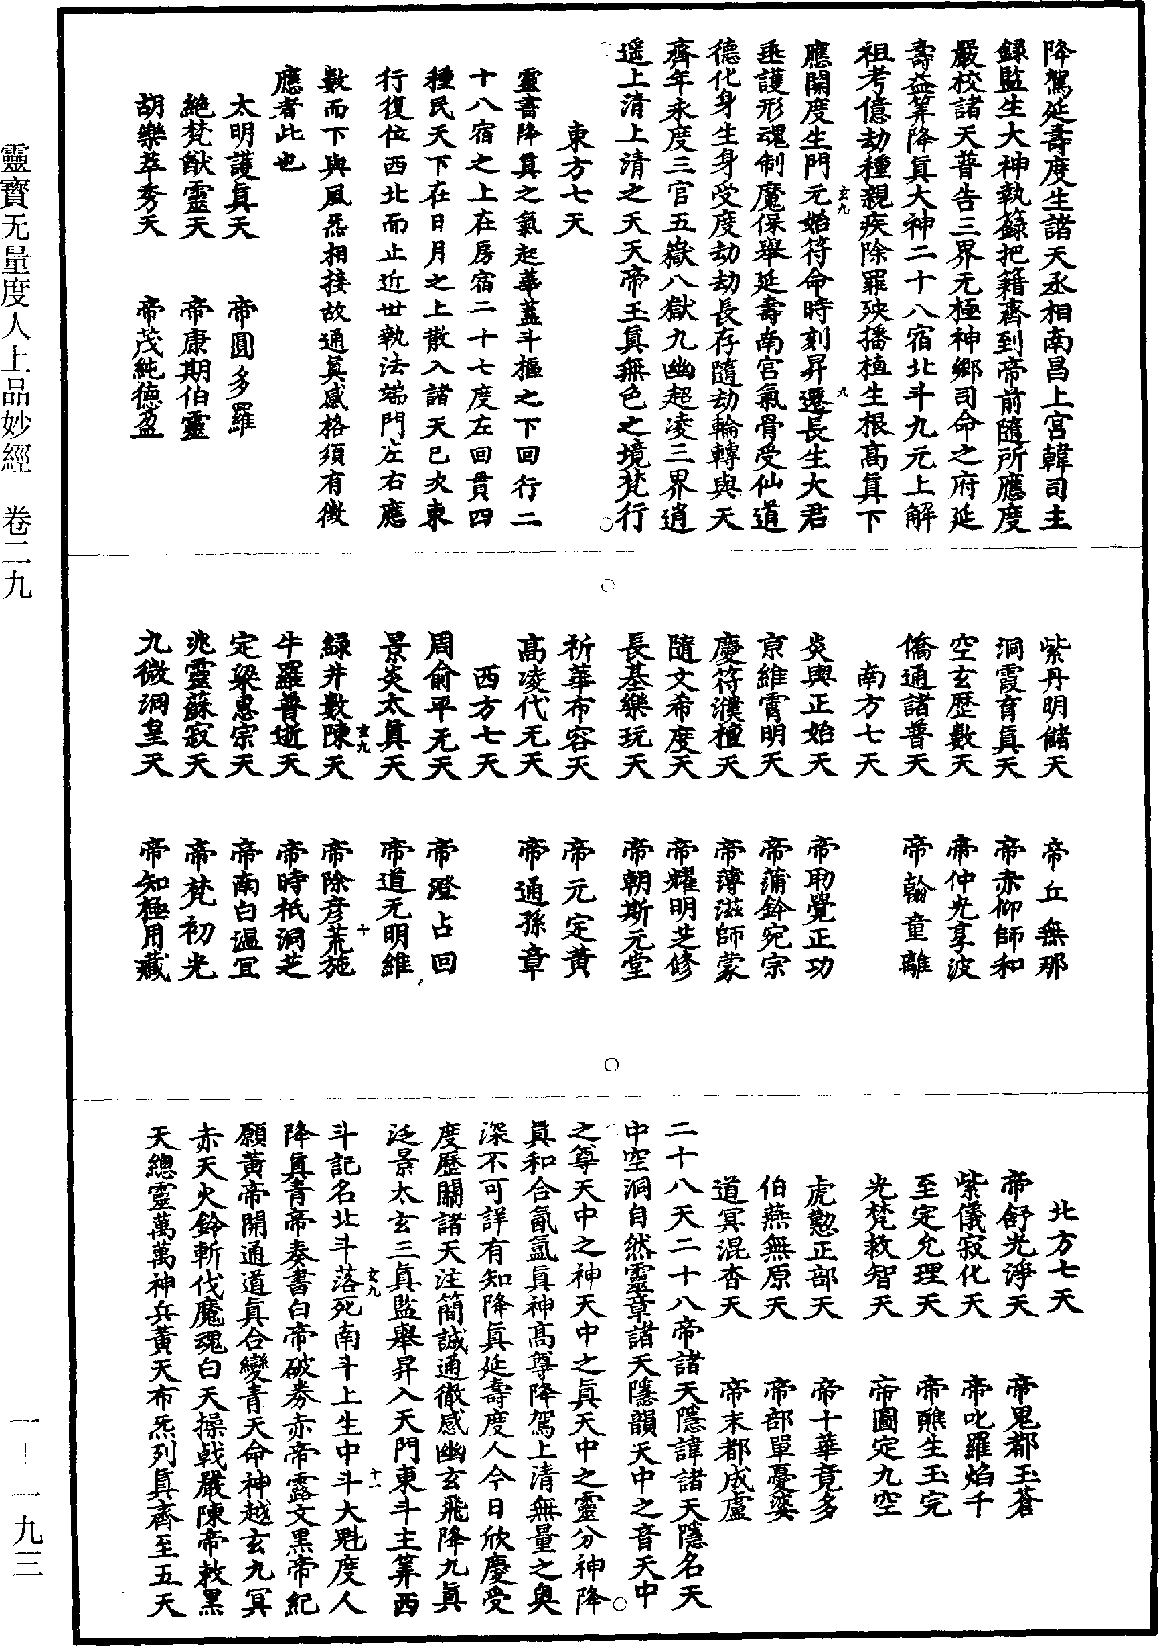 靈寶无量度人上品妙經　卷二九
降駕延壽度生諸天丞相南昌上宮韓司主
錄監生大神執籙把籍齊到帝前隨所應度
嚴校諸天普告三界无極神鄉司命之府延
壽益筭降真大神二十八宿北斗九元上解
祖考億劫種親疾除罪殃播植生根高真下
應開度生門元始符命時刻昇遷長生大君
玄九
九
垂護形魂制魔保舉延壽南宮氣骨受仙道
德化身生身受度劫劫長存隨劫輪轉與天
齊年永度三官五嶽八獄九幽超凌三界逍
遥上清上清之天天帝玉真無色之境梵行
東方七天
靈書降真之氣起華蓋斗樞之下回行二
十八宿之上在房宿二十七度左回貫四
種民天下在日月之上散入諸天己次東
行復位西北而止近世執法端門左右應
數而下與風炁相接故通真感格須有徵
應者此也
太明護真天　帝圓多羅
絶梵猷靈天　帝康期伯靈
胡樂萃秀天　帝茂純德盈
紫丹明儲天　帝丘無那
洞霞育真天　帝赤仰師和
空玄歷數天　帝仲光享波
僑通諸普天　帝翰童離
南方七天
炎輿正始天　帝劭覺正功
京維霄明天　帝蒲鈴宛宗
慶符濮檀天　帝薄滋師蒙
隨文希度天　帝耀明芝修
長基樂玩天　帝朝斯元堂
祈華布容天　帝元定黃
高凌代无天　帝通孫章
西方七天
周俞平无天　帝澄占回
景炎太真天　帝道无明維
玄九
十
緑井數陳天　帝除彦荒施
牛羅普逝天　帝時祇洞芝
定梁惠宗天　帝南白邉冝
兆靈蘇寂天　帝梵初光
九微洞皇天　帝知極用藏
北方七天
帝舒光淨天　帝鬼都玉蒼
紫儀寂化天　帝叱羅焰千
至定允理天　帝醮生玉完
光梵敕智天　帝圖定九空
虎懃正部天　帝十華竟多
伯燕無原天　帝部單憂婆
道冥混杳天　帝末都成盧
二十八天二十八帝諸天隱諱諸天隱名天
中空洞自然靈章諸天隱韻天中之音天中
之尊天中之神天中之真天中之靈分神降
真和合氤氳真神高尊降駕上清無量之奥
深不可詳有知降真延壽度人今日欣慶受
度歷關諸天注簡誠通徹感幽玄飛降九真
泛景太玄三真監舉昇入天門東斗主筭西
玄九
十一
斗記名北斗落死南斗上生中斗大魁度人
降真青帝奏書白帝破券赤帝露文黑帝紀
願黃帝開通道真合變青天命神越玄九冥
赤天火鈴斬伐魔魂白天操戟嚴陳帝敕黑
天總靈萬萬神兵黃天布炁列真齊至五天
一-一九三